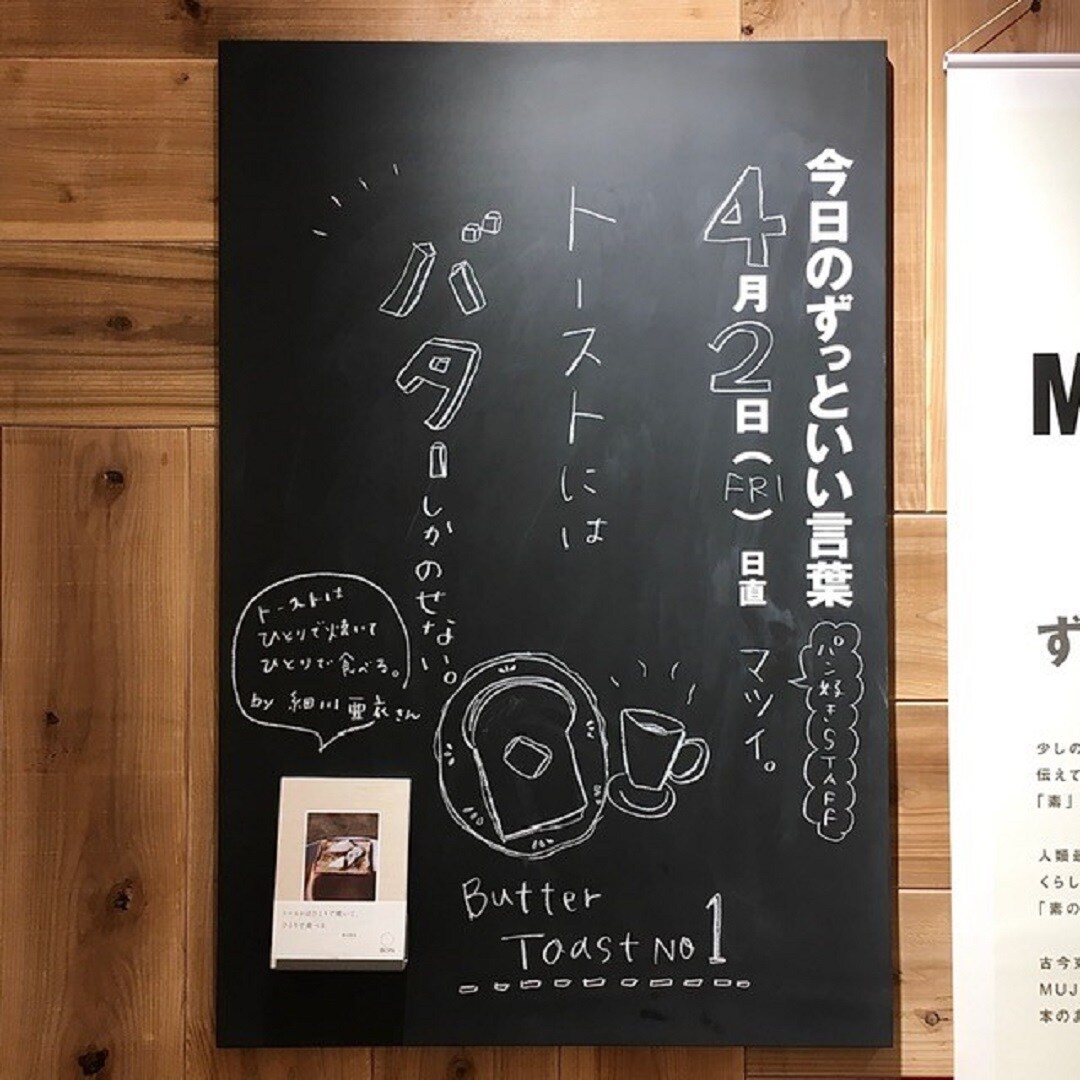 今日のずっといい言葉
4月2日(FRI) 日直 マツイ。
パン好きSTAFF
トーストには
バターしかのせない。
トーストは
ひとりで焼いて
ひとりで食べる。
by 細川亜衣さん
Butter
Toast No 1
トーストはひとりで焼いて、
ひとりで食べる
M
ず
少しの
伝えて
「素」
人類最
くらし
「素の
古今東
MUJ
本のあ